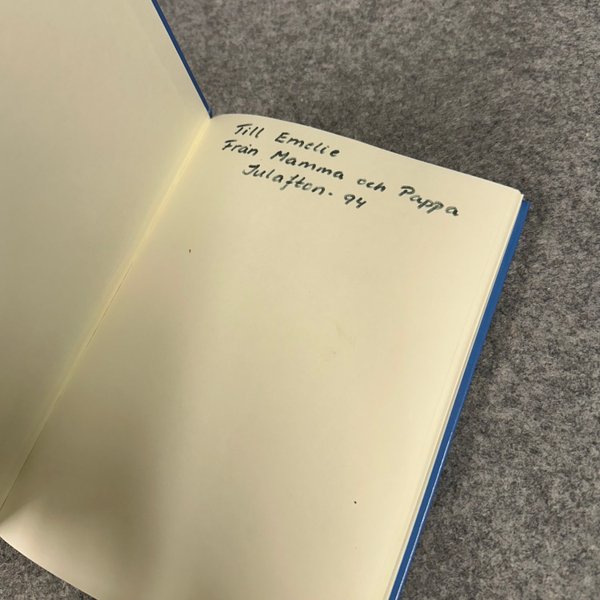 Till Emelie
Från Mamma och Pappa
Julafton - 94